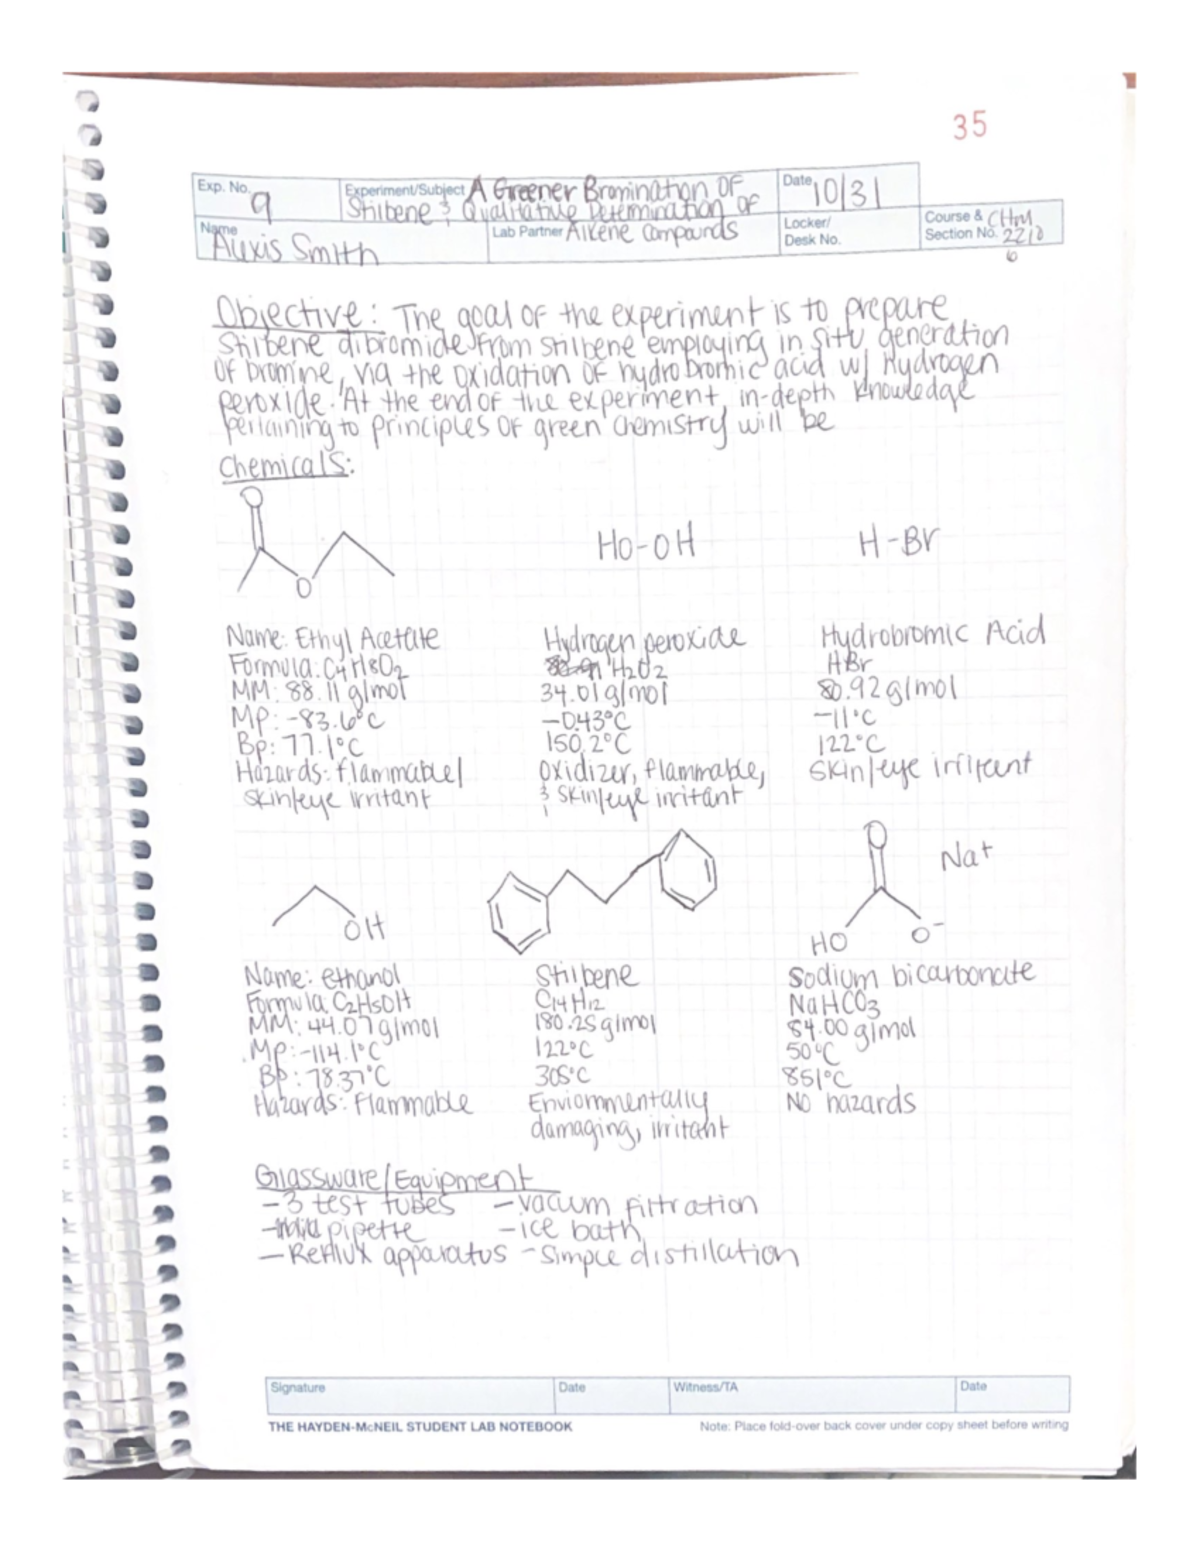 35
Exp. No. 9
Experiment/Subject A Greener Bromination Of
Stilbene & Qualitative Determination of
Date 10/31
Name Alexis Smith
Lab Partner Alkene Compounds
Locker/
Desk No.
Course & CHM
Section No. 2210
Objective: The goal of the experiment is to prepare
Stilbene dibromide from stilbene employing in situ generation
Of bromine, via the oxidation of hydrobromic acid w/ Hydrogen
peroxide. At the end of the experiment, in-depth knowledge
pertaining to principles of green chemistry will be
Chemicals:
O
O
HO-OH
H-Br
Name: Ethyl Acetate
Formula: C4H8O2
MM: 88.11 g/mol
MP: -83.6°C
Bp: 77.1°C
Hazards: flammable/
skin/eye irritant
Hydrogen peroxide
H2O2
34.01 g/mol
-0.43°C
150.2°C
Oxidizer, flammable,
& skin/eye irritant
Hydrobromic Acid
HBr
80.92 g/mol
-11°C
122°C
skin/eye irritant
OH
O
Na+
HO
O-
Name: ethanol
Formula: C2H5OH
MM: 44.07 g/mol
MP: -114.1°C
BP: 78.37°C
Hazards: Flammable
Stilbene
C14H12
180.25 g/mol
122°C
305°C
Enviornmentally
damaging, irritant
Sodium bicarbonate
NaHCO3
84.00 g/mol
50°C
851°C
No hazards
Glassware/Equipment
-3 test tubes -vacuum filtration
pipette -ice bath
-Reflux apparatus -simple distillation
Signature
Date
Witness/TA
Date
THE HAYDEN-McNEIL STUDENT LAB NOTEBOOK
Note: Place fold-over back cover under copy sheet before writing